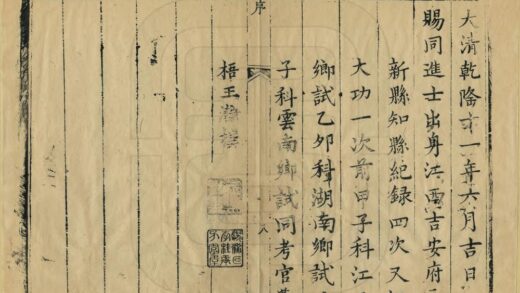 大清乾隆一年六月吉日
賜同進士出身江西吉安府
新縣知縣紀録四次又
大功一次前甲子科江
鄉試乙卯科湖南鄉試
子科雲南鄉試同考官
序
梧王撰